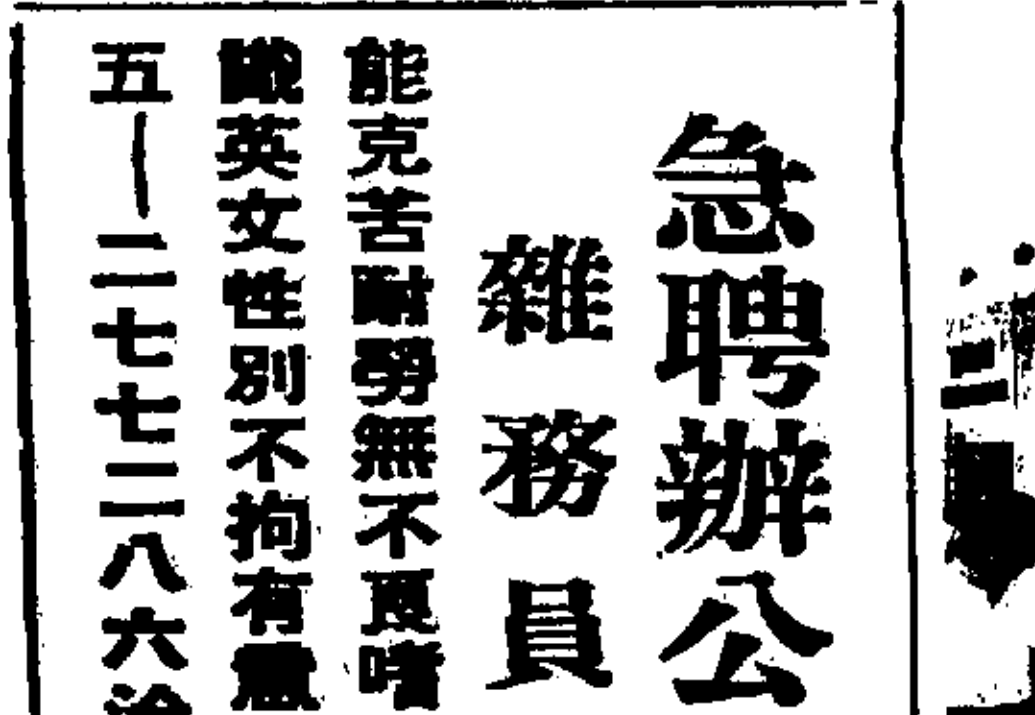 急聘辦公
雜務員
能克苦耐勞無不良嗜
識英文女性別不拘有意
五—二七七二八六洽